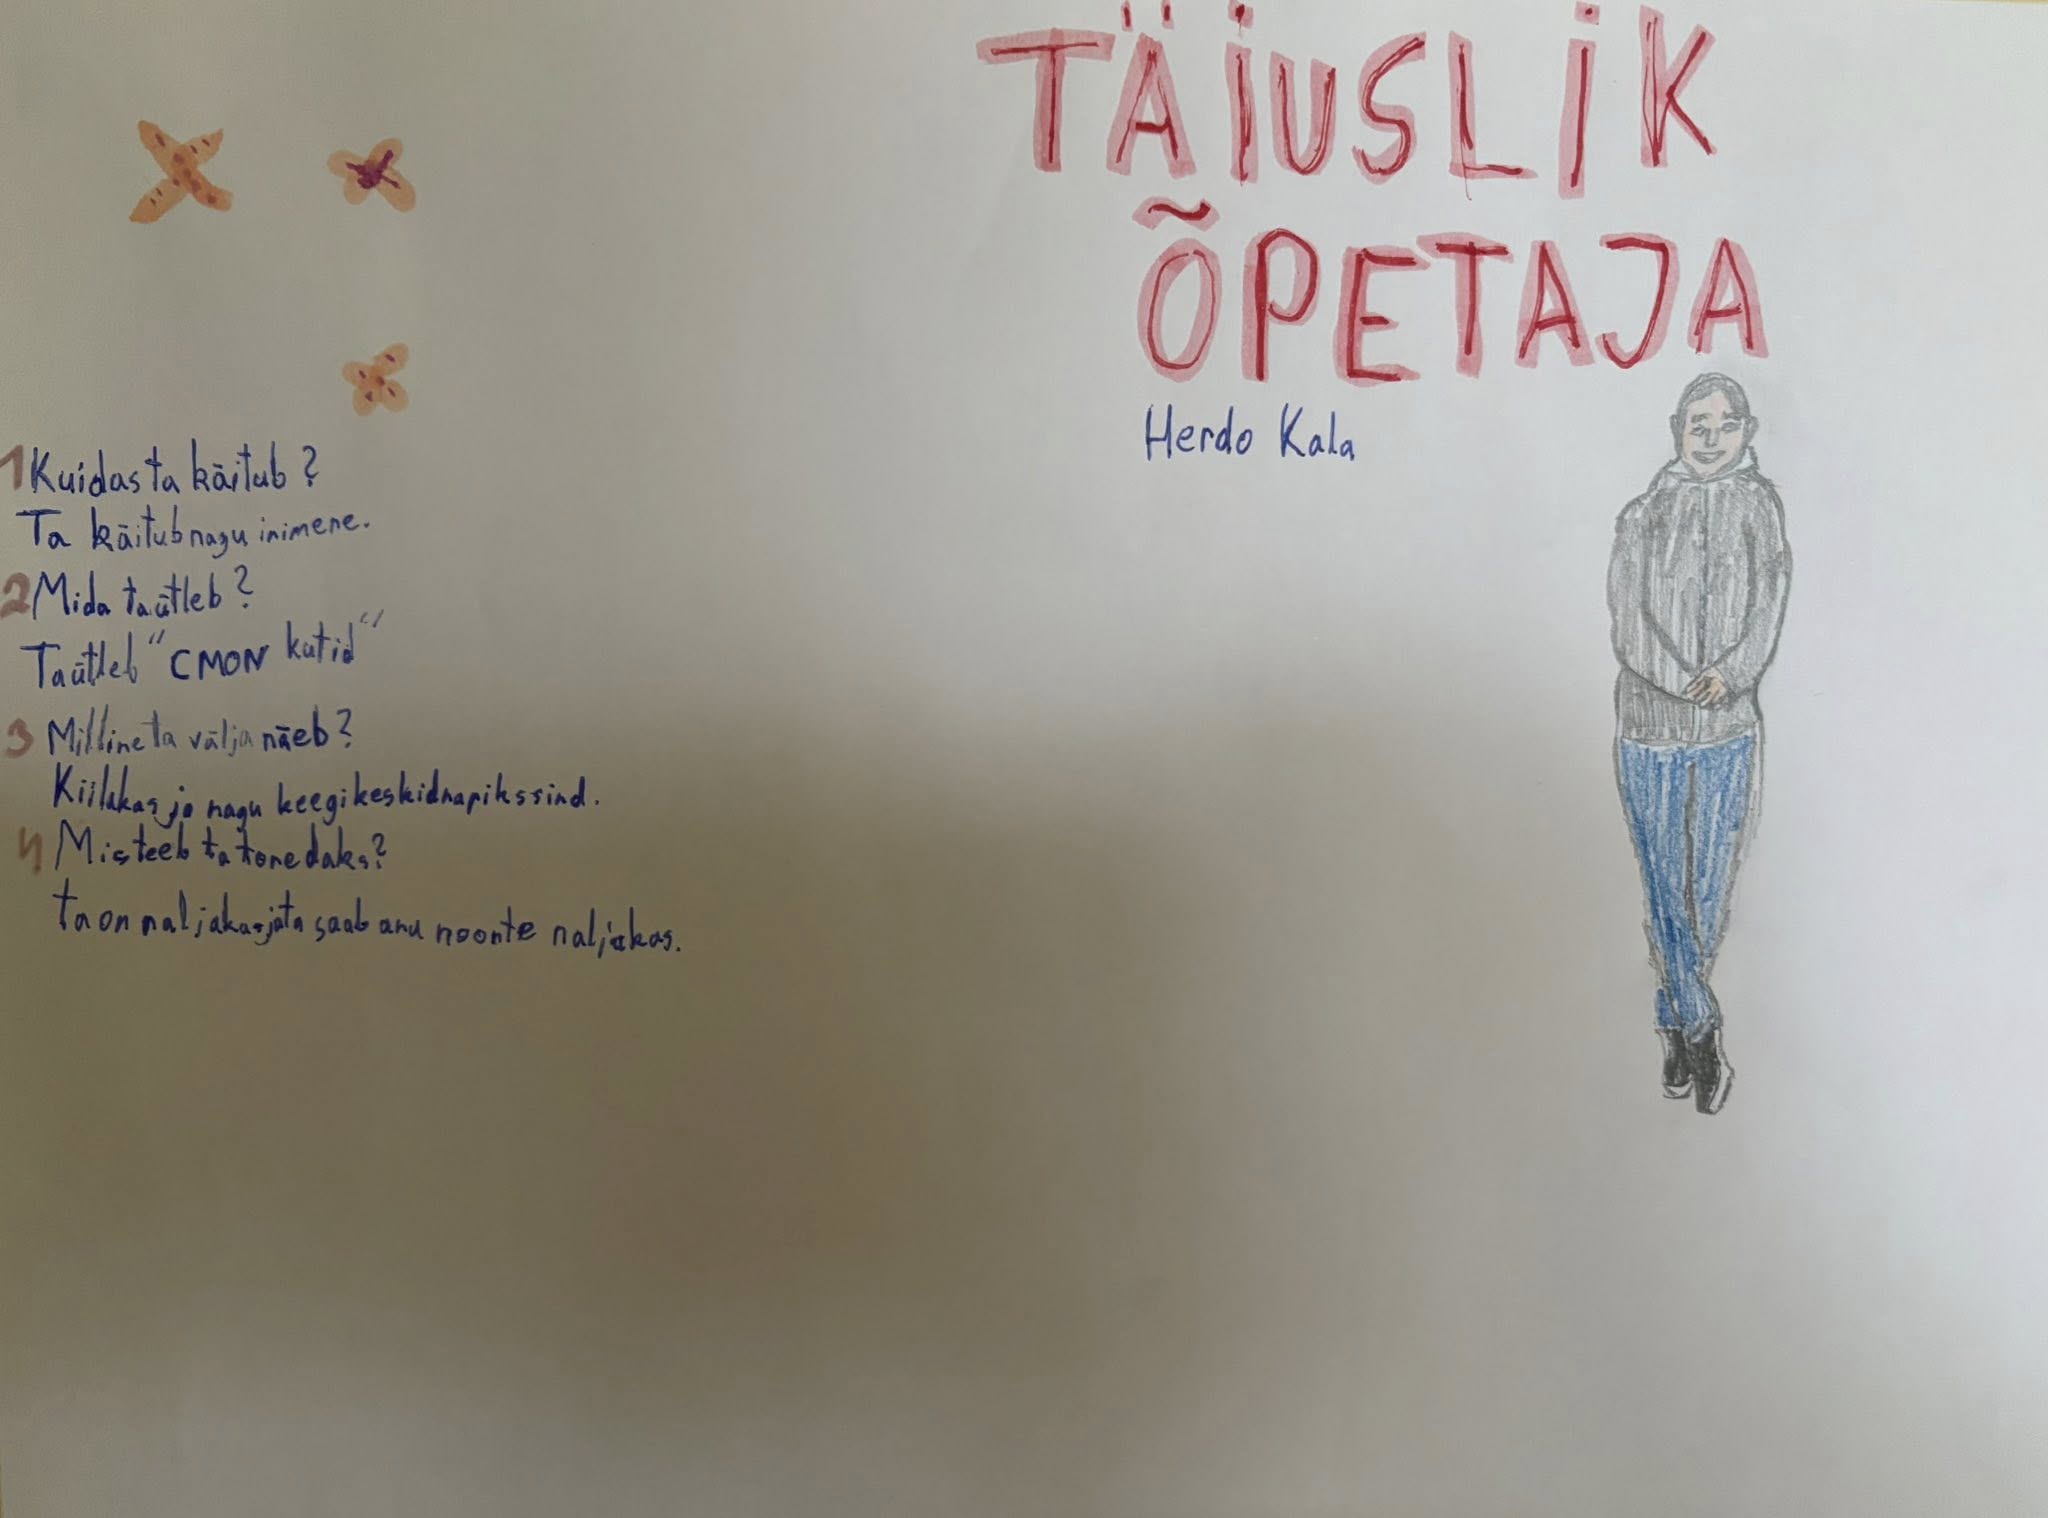 TÄIUSLIK
ÕPETAJA
Herdo Kala
1 Kuidas ta käitub?
Ta käitub nagu inimene.
2 Mida ta ütleb?
Ta ütleb "CMON kutid"
3 Milline ta välja näeb?
Kiilakas ja nagu keegi kes kidnapiks sind.
4 Mis teeb ta toredaks?
ta on naljakas ja ta saab aru noonte naljakas.